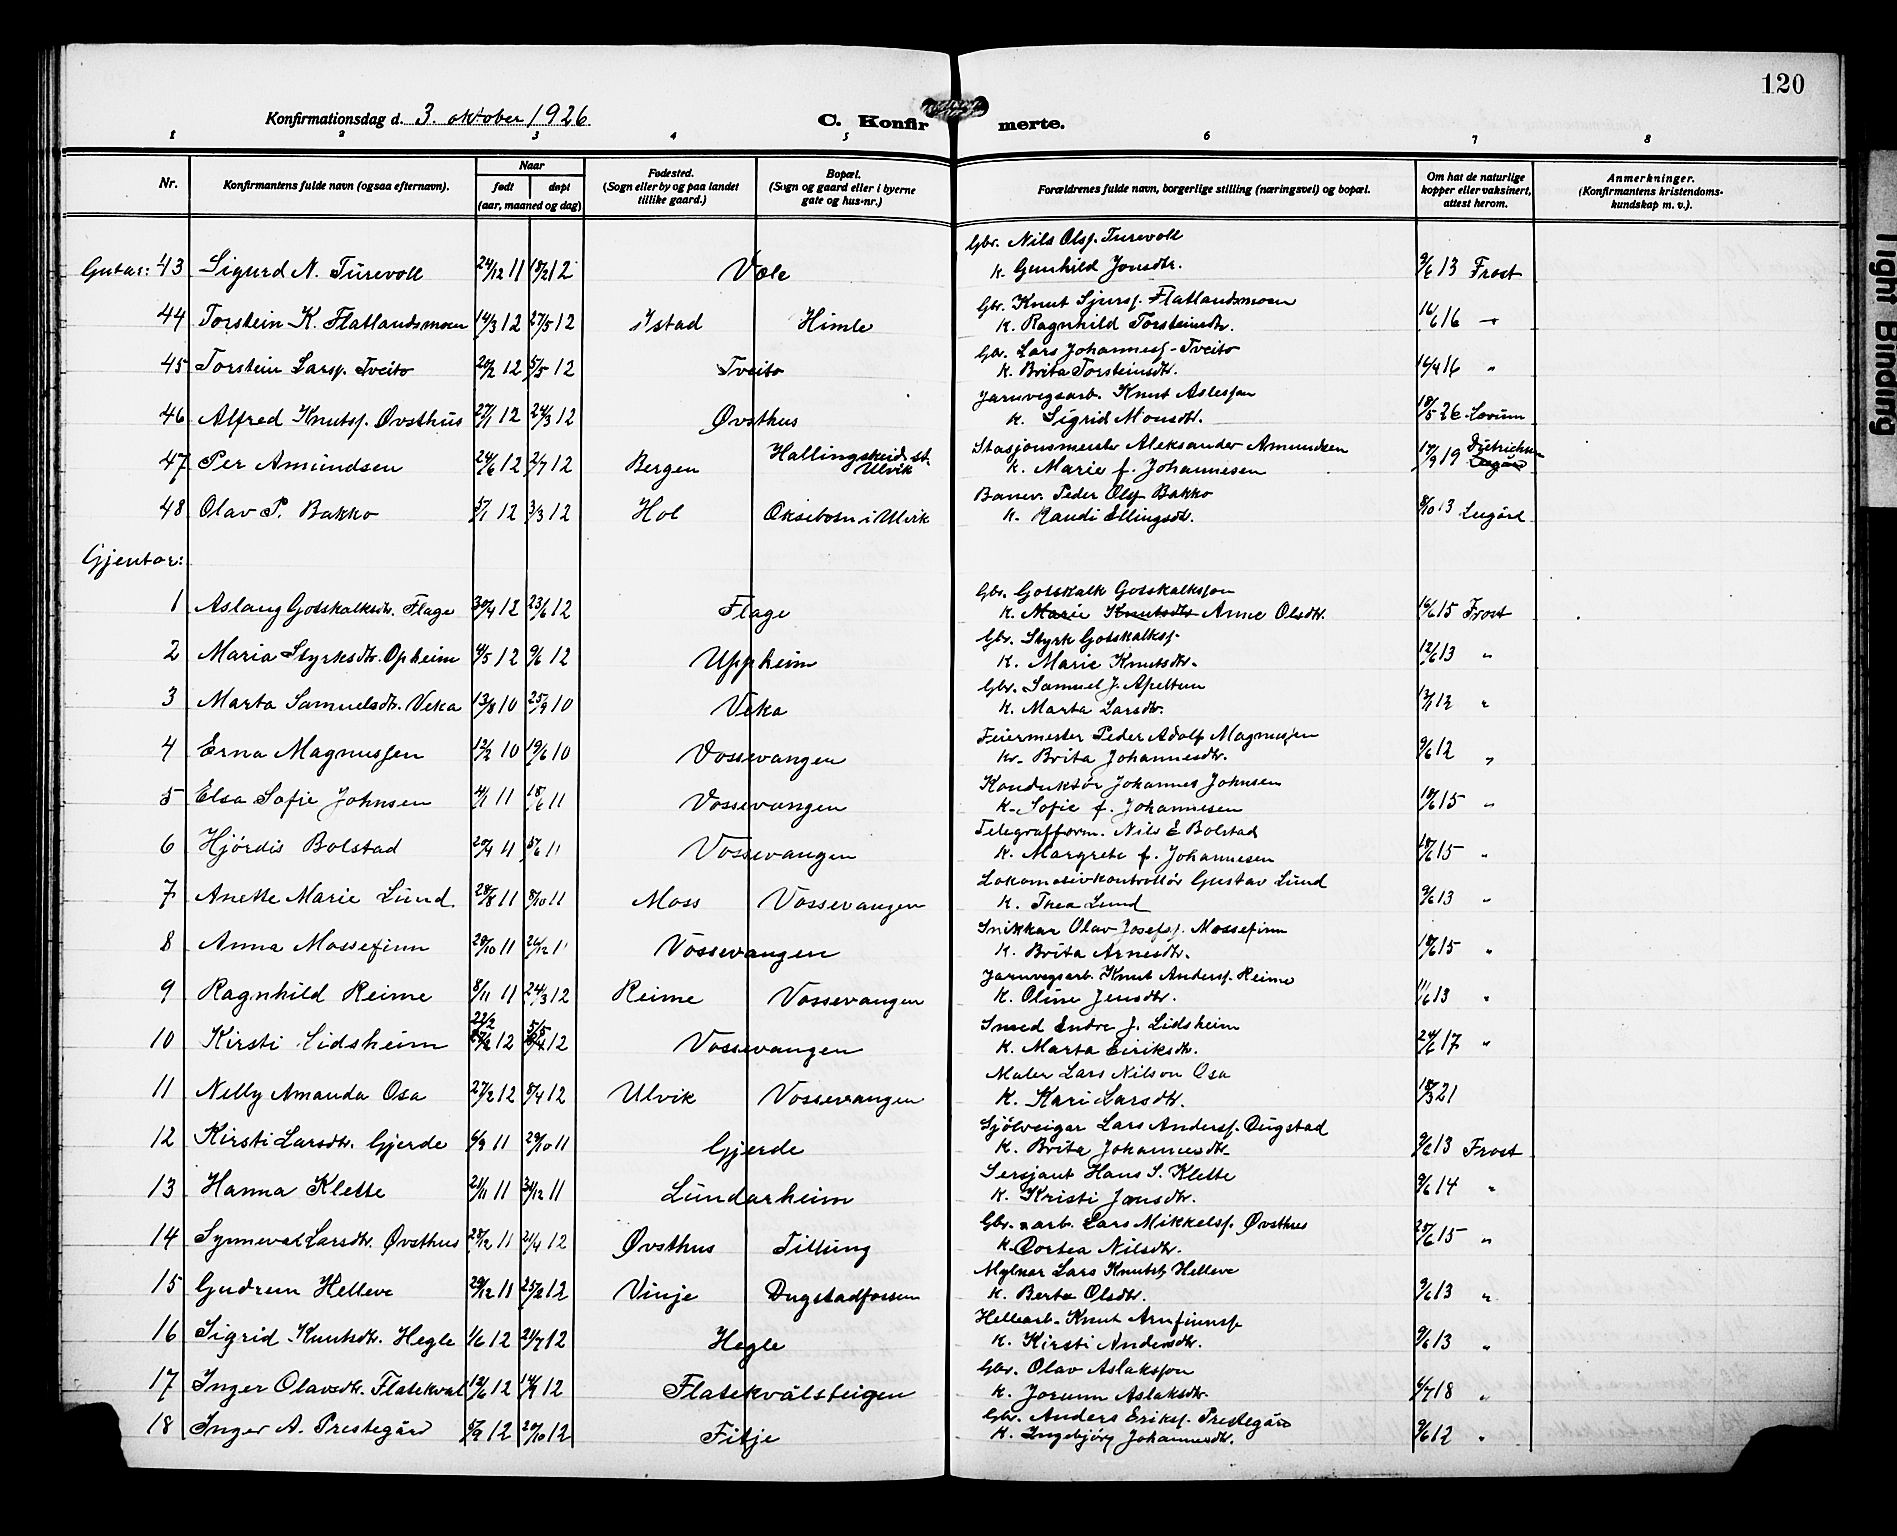 120
Konfirmationsdag d. 3. oktober 1926
C. Konfirmerte.
1 2 3 4 5 6 7 8
Nr. Konfirmantens fulde navn (ogsaa efternavn). Naar født døpt (aar, maaned og dag) Fødested. (Sogn eller by og paa landet tillike gaard.) Bopæl. (Sogn og gaard eller i byerne gate og hus-nr.) Forældrenes fulde navn, borgerlige stilling (næringsvei) og bopæl. Om hat de naturlige kopper eller vaksinert, attest herom. Anmerkninger. (Konfirmantens kristendomskundskap m. v.).
Gutar: 43 Sigurd N. Turevoll 24/12 11 18/2 12 Væle Gbr. Nils Olsf. Turevoll 9/6 13 Frost
k. Gunhild Jonsdtr.
44 Torstein K. Flatlandsmoen 14/3 12 27/5 12 Istad Himle Gbr. Knut Sjursf. Flatlandsmoen 16/6 16 "
k. Ragnhild Torsteinsdtr.
45 Torstein Larsf. Tveito 20/2 12 5/5 12 Tveito Gbr. Lars Johannesf. Tveito 16/4 16 "
k. Brita Torsteinsdtr.
46 Alfred Knutsf. Øvsthus 27/1 12 24/3 12 Øvsthus Jarnvegsarb. Knut Aslesson 18/5 26 Lovum
k. Sigrid Monsdtr.
47 Per Amundsen 24/6 12 2/7 12 Bergen Hallingskeid st. Ulvik Stasjonsmester Aleksander Amundsen 17/9 19 Dietrichson
k. Marie f. Johannesen
48 Olav P. Bakko 5/1 12 3/3 12 Hol Oksebotn i Ulvik Banev. Peder Olsf. Bakko 8/10 13 Lugård
k. Randi Ellingsdtr.
Gjentor:
1 Aslaug Gotskalksdtr. Flage 30/4 12 23/6 12 Flage Gbr. Gotskalk Gotskalksson 16/6 15 Frost
k. Marie Knutsdtr Anne Olsdtr.
2 Maria Styrksdtr. Opheim 4/5 12 9/6 12 Uppheim Gbr. Styrk Gotskalksf. 12/6 13 "
k. Marie Knutsdtr.
3 Marta Samuelsdtr. Veka 13/8 10 25/9 10 Veka Gbr. Samuel J. Apeltun 12 "
k. Marta Larsdtr.
4 Erna Magnussen 12/2 10 19/6 10 Vossevangen Feiermester Peder Adolf Magnussen 9/6 12 "
k. Brita Johannesdtr.
5 Elsa Sofie Johnsen 4/1 11 18/6 11 Vossevangen Konduktør Johannes Johnsen 18/6 15 "
k. Sofie f. Johannesen
6 Hjørdis Bolstad 20/4 11 5/6 11 Vossevangen Telegrafform. Nils E Bolstad 18/6 15 "
k. Margrete f. Johannesen
7 Anette Marie Lund 28/8 11 8/10 11 Moss Vossevangen Lokomotivkontrollør Gustav Lund 9/6 13 "
k. Thea Lund
8 Anna Mossefinn 20/10 11 26/12 11 Vossevangen Snikkar Olav Josefsf. Mossefinn 18/6 15 "
k. Brita Arnesdtr.
9 Ragnhild Reime 8/11 11 24/3 12 Reime Vossevangen Jarnvegsarb. Knut Andersf. Reime 11/6 13 "
k. Oline Jensdtr.
10 Kirsti Lidsheim 22/2 12 5/5 12 Vossevangen Smed Endre J. Lidsheim 24/6 17 "
k. Marta Eiriksdtr.
11 Nelly Amanda Osa 27/2 12 8/4 12 Ulvik Vossevangen Maler Lars Nilson Osa 18/3 21
k. Kari Larsdtr.
12 Kirsti Larsdtr. Gjerde 6/9 11 29/10 11 Gjerde Sjølveigar Lars Andersf. Dugstad 9/6 13 Frost
k. Brita Johannesdtr.
13 Hanna Klette 21/11 11 31/12 11 Lundarheim Sersjant Hans S. Klette 9/6 14 "
k. Kristi Jonsdtr.
14 Synneva Larsdtr. Øvsthus 25/12 11 21/4 12 Øvsthus Tillung Gbr. arb. Lars Mikkelsf. Øvsthus 20/6 15 "
k. Dortea Nilsdtr.
15 Gudrun Helleve 29/12 11 25/2 12 Vinje Dugstadfossen Mylnar Lars Knutsf. Helleve 9/6 13 "
k. Berta Olsdtr.
16 Sigrid Knutsdtr. Hegle 1/6 12 21/7 12 Hegle Hellearb. Knut Arnfinnsf. 9/6 13 "
k. Kirsti Andersdtr.
17 Inger Olavsdtr. Flatekval 12/6 12 14/9 12 Flatekvålsteigen Gbr. Olav Aslakson 6/7 18 "
k. Jorunn Aslaksdtr.
18 Inger A. Prestegård 5/9 12 20/10 12 Fitje Gbr. Anders Eriksf. Prestegård 9/6 12 "
k. Ingebjørg Johannesdtr.
Tight Binding